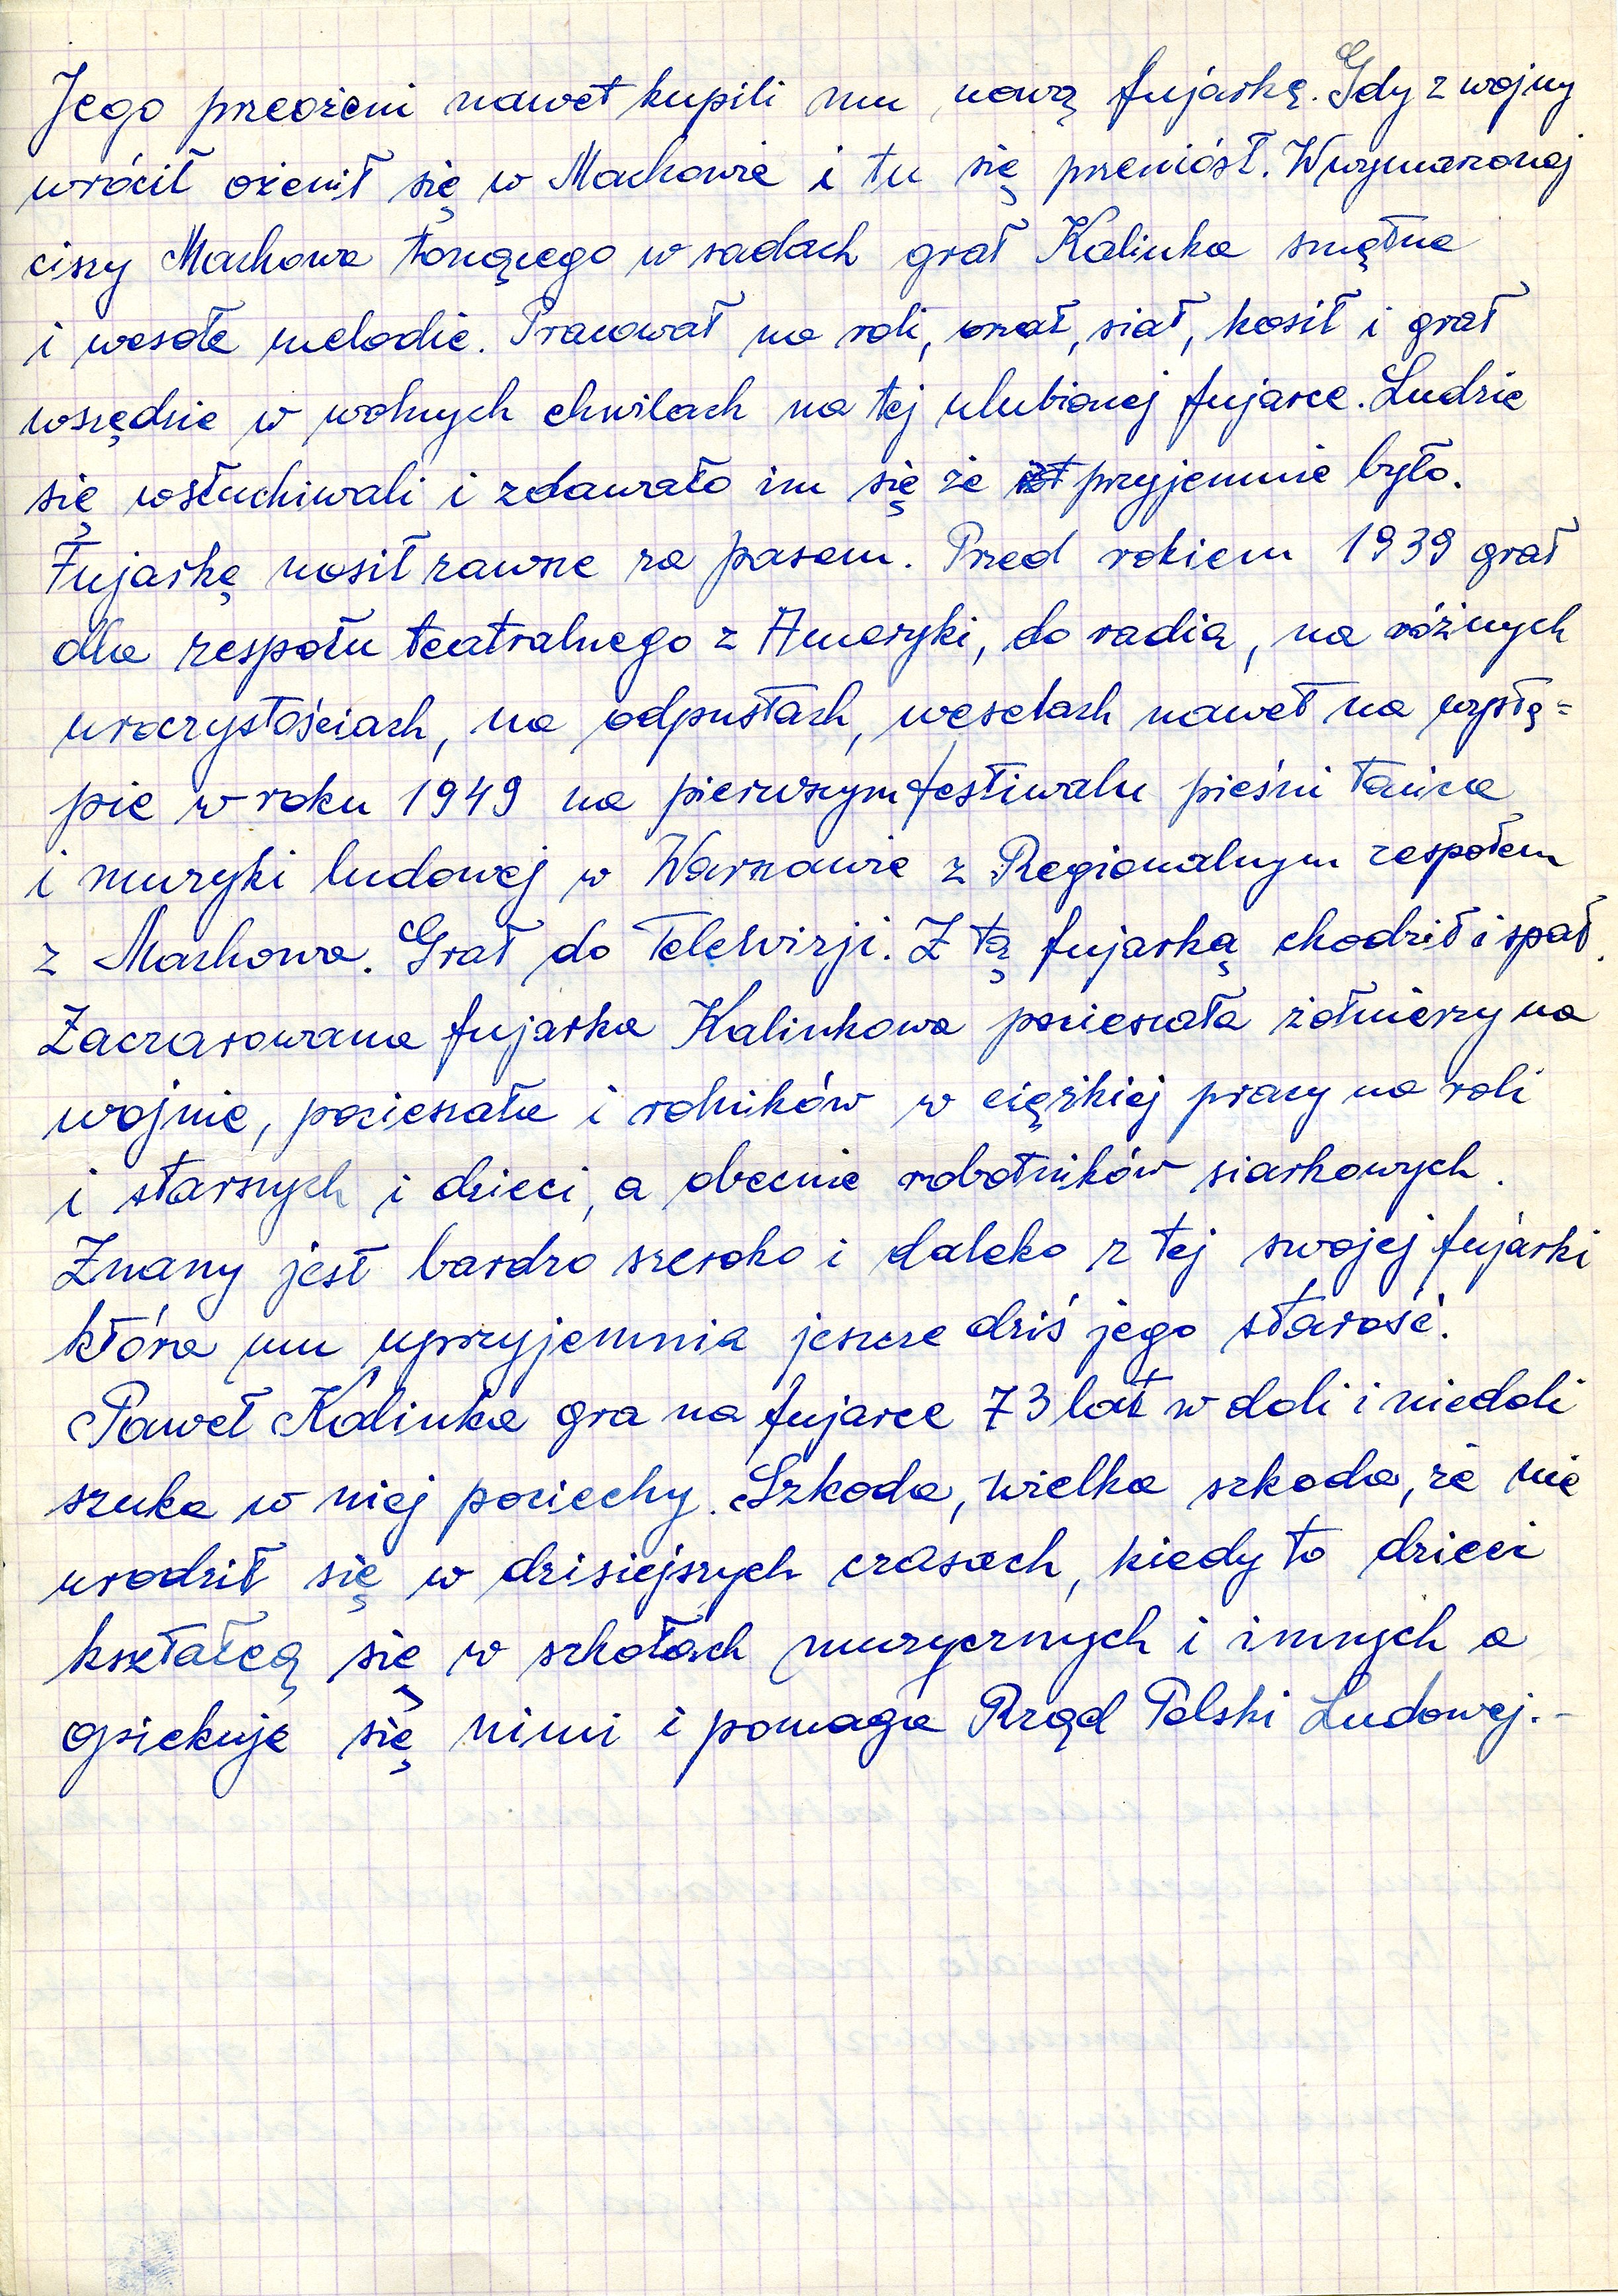 Jego przeożeni nawet kupili mu nową fujarkę. Gdy z wojny
wrócił ożenił się w Machowie i tu się przeniósł. W wymarzonej
ciszy Machowa tonącego w sadach grał Kalinka smętne
i wesołe melodie. Pracował na roli, orał, siał, kosił i grał
wszędzie w wolnych chwilach na tej ulubionej fujarce. Ludzie
się wsłuchiwali i zdawało im się że przyjemnie było.
Fujarkę nosił zawsze za pasem. Przed rokiem 1939 grał
dla zespołu teatralnego z Ameryki, do radia, na różnych
uroczystościach, na odpustach, weselach nawet na wystę=
pie w roku 1949 na pierwszym festiwalu pieśni tańca
i muzyki ludowej w Warszawie z Regionalnym zespołem
z Machowa. Grał do Telewizji. Z tą fujarką chodził i spał.
Zaczarowana fujarka Kalinkowa pocieszała żołnierzy na
wojnie, pocieszała i rolników w ciężkiej pracy na roli
i starszych i dzieci, a obecnie robotników siarkowych.
Znany jest bardzo szeroko i daleko z tej swojej fujarki
która mu uprzyjemnia jeszcze dziś jego starość.
Paweł Kalinka gra na fujarce 73 lat w doli i niedoli
szuka w niej pociechy. Szkoda, wielka szkoda, że nie
urodził się w dzisiejszych czasach, kiedy to dzieci
kształcą się w szkołach muzycznych i innych a
opiekuje się nimi i pomaga Rząd Polski Ludowej.-